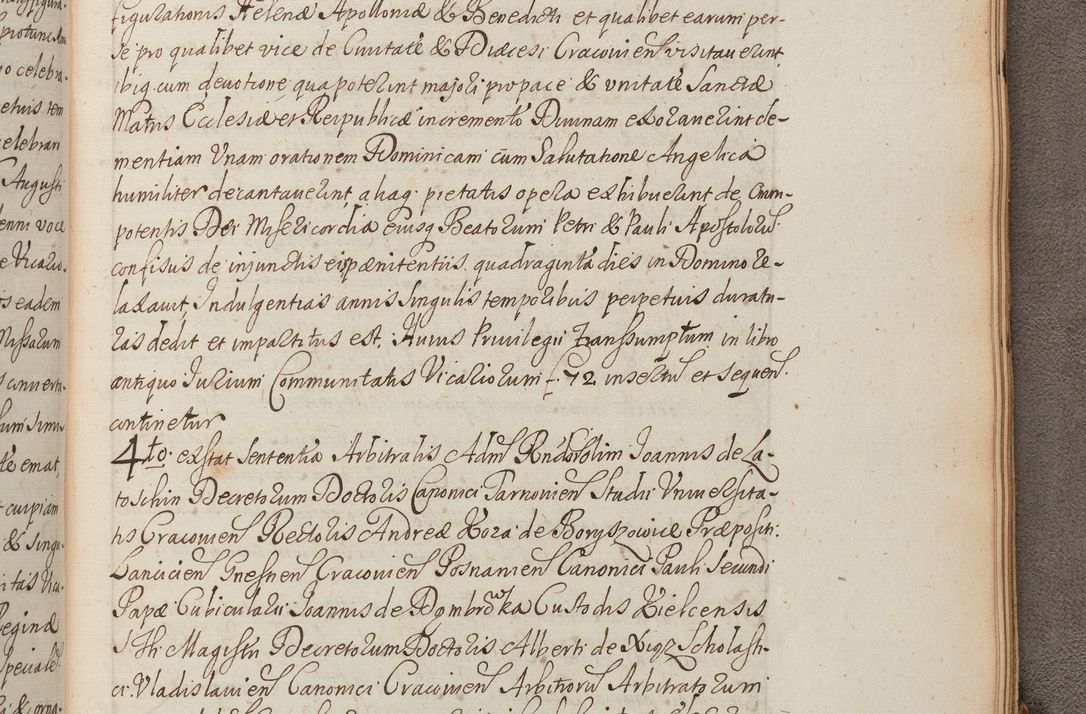 figurationis Helenæ Apolloniæ & Benedicti et qualibet earum per-
se pro qualibet vice de Civitate & Diæcesi Cracovien visitaverint
ibiq cum devotione qua poterint majori pro pace & unitate Sanctæ
Matris Ecclesiæ et Reipublicæ incremento Divinam exoraverint cle-
mentiam Unam orationem Dominicam cum Salutatione Angelica
humiliter decantaverint aliaq pietatis opera exhibuerint de Omni-
potentis Dei Misericordia eiusq Beatorum Petri & Pauli Apostoloru
confisus de injunctis eis pænitentiis quadraginta dies in Domino re-
laxavit Indulgentias annis singulis temporibus perpetuis duratu-
ras dedit et impartitus est. Huius Privilegii Transsumptum in libro
antiquo Iurium Communitatis Vicariorum f. 72 insertu et sequen.
continetur
4to. exstat Sententia Arbitralis Adm Rndor olim Ioannis de La-
toschin Decretorum Doctoris Canonici Tarnovien Studii Universita-
tis Cracovien Rectoris Andreæ Roza de Boryszowice Præpositi
Lancicien Gnesnen Cracovien Posnanien Canonici Pauli Secundi
Papæ Cubicularii Ioannis de Dombrowka Custodis Kielcensis
S Th Magistri Decretorum Doctoris Alberti de Xiqz Scholasti-
ci Vladislavien Canonici Cracovien Arbitrorū Arbitratorum